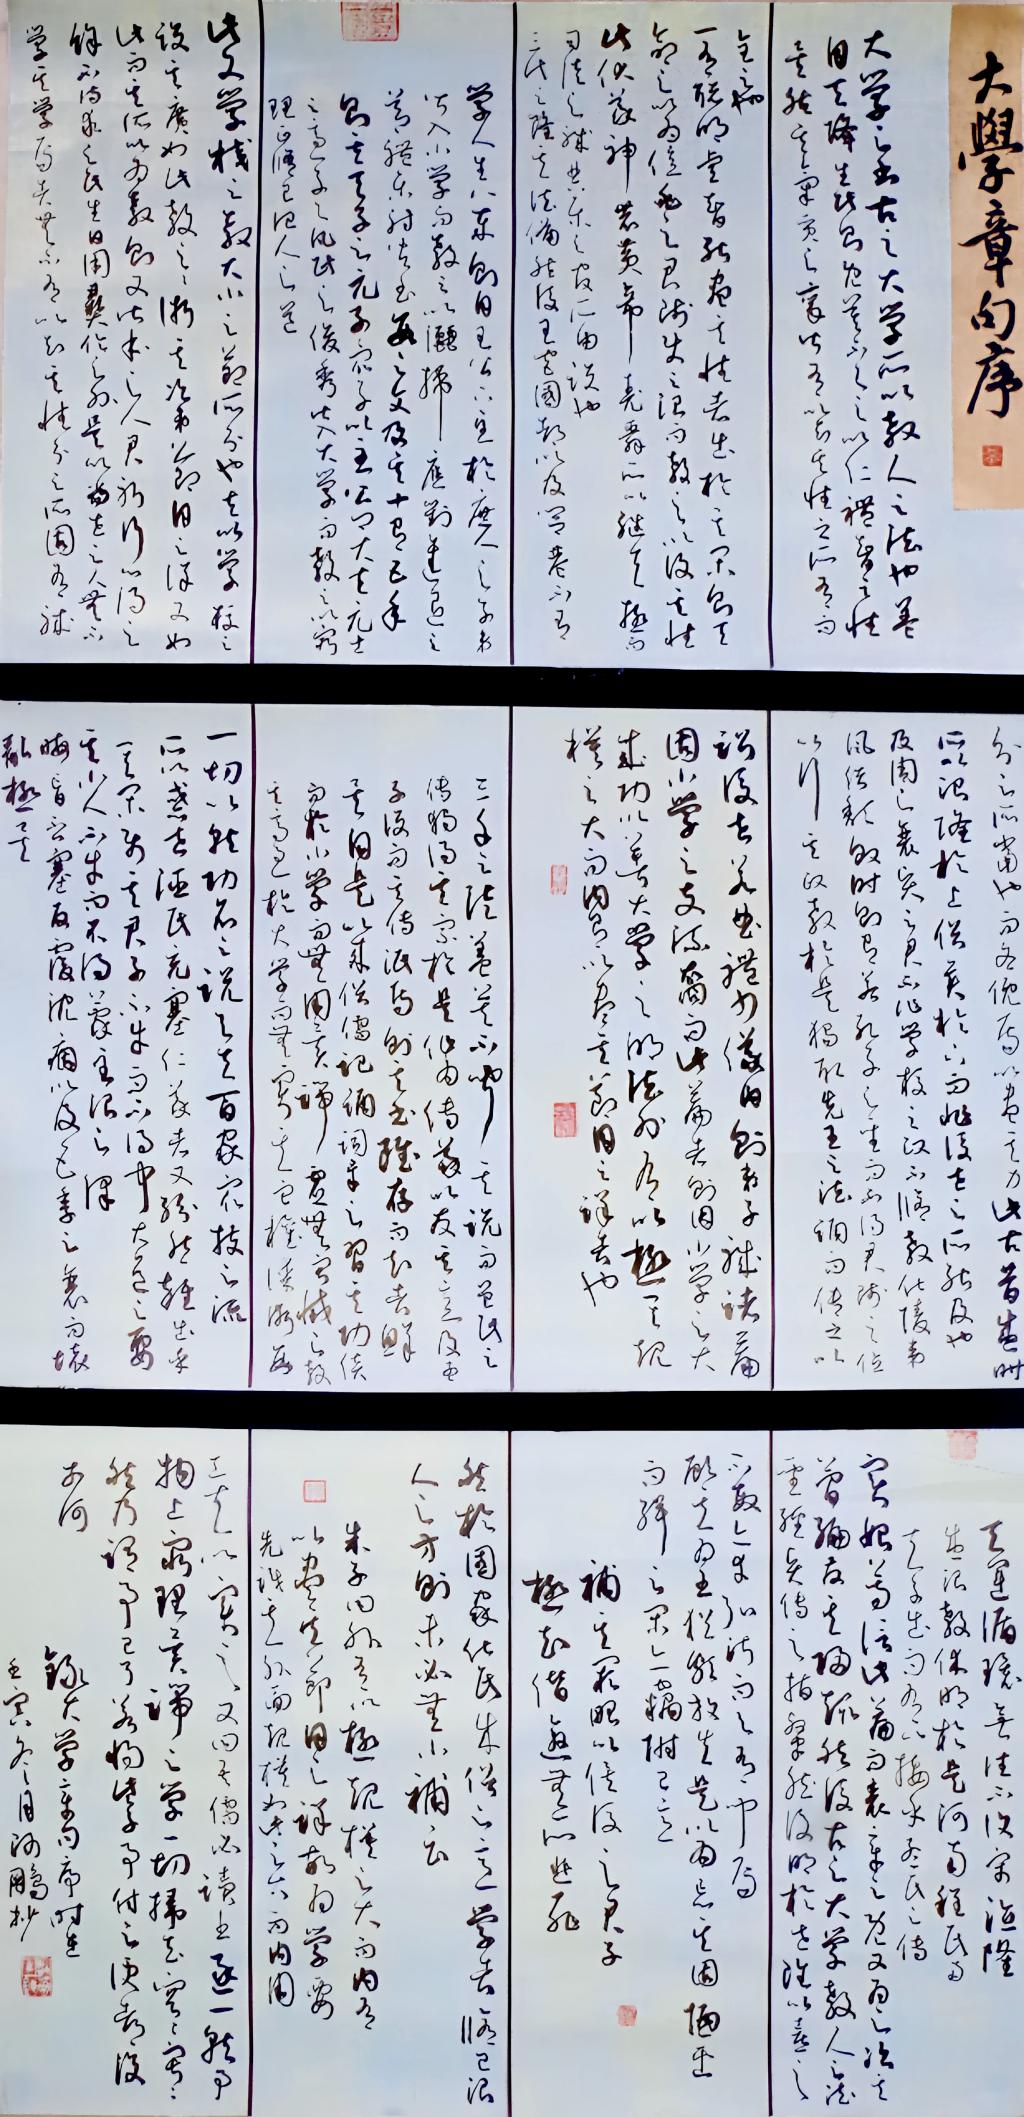 大學章句序
大学之書古之大学所以教人之法也蓋
自天降生民則既莫不与之以仁禮智之性
矣然其氣質之稟皆有以知其性之所有而
全之也
一有聰明睿智能盡其性者出於其間則天
命之以為億兆之君師使之治而教之以復其性
此伏羲神農黃帝堯舜所以繼天極而
司徒之職典樂之官所由設也
三代之隆其法備然後王宮國都以及閭巷不有
学人生八歲則自王公以至於庶人之子弟
皆入小学而教之以灑掃應對進退之
節禮樂射御書數之文及其十有五年
則其天子之元子眾子以至公卿大夫元士
之適子与凡民之俊秀皆入大学而教之以窮
理正脩己治人之道
此又学校之教大小之節所分也夫以学校之
設其廣如此教之之術其次第節目之詳又如
此而其所以為教則又皆本之人君躬行心得之
餘不待求之民生日用彝倫之外是以當世之人無不
学其学焉者無不有以知其性分之所固有職
分之所當也而各俛焉以盡其力此古昔盛時
所以治隆於上俗美於下而非後世之所能及也
及周之衰賢之君不作学校之政不脩教化陵夷
風俗頹敗時則有若孔子之聖而不得君師之位
以行其政教於是獨取先王之法誦而傳之以
詔後世若曲禮少儀内則弟子職諸篇
固小学之支流餘裔而此篇者則因小学之大
成功以著大学之明法外有以極其規
模之大而内有以盡其節目之詳者也
三千之徒蓋莫不聞其說而曾氏之
傳獨得其宗於是作為傳義以發其意及孟
子沒而其傳泯焉則其書雖存而知者鮮
矣自是以來俗儒記誦詞章之習其功倍
而於小学而無用異端虛無寂滅之教
其高過於大学而無實其它權謀術數
一切以就功名之說与夫百家眾技之流
所以惑世誣民充塞仁義者又紛然雜出乎
其間使其君子不幸而不得聞大道之要
其小人不幸而不得蒙至治之澤
晦盲否塞反覆沈痼以及五季之衰而壞
亂極矣
天運循環無往不復宋德隆
盛治教休明於是河南程氏兩
夫子出而有以接乎孟氏之傳
實始尊信此篇而表章之既又為之次其
簡編發其歸趣然後古之大学教人之法
聖經賢傳之指粲然復明於世雖以熹之
不敏亦幸私淑而与有聞焉
顧其為書猶頗放失是以忘其固陋采
而輯之間亦竊附己意
補其闕略以俟後之君子
極知僭踰無所逃罪
然於國家化民成俗之意学者脩己治
人之方則未必無小補云
朱子曰外有以極規模之大而内有
以盡其節目之詳故為学要
先識其外面規模如此之大而内用
工夫以實之又曰吾儒必讀書逐一就事
物上窮理異端之学一切掃去空空寂寂
然乃謂事已了若將些子事付之便都沒
奈何
錄大学章句序時在
壬寅冬月阿鵬抄